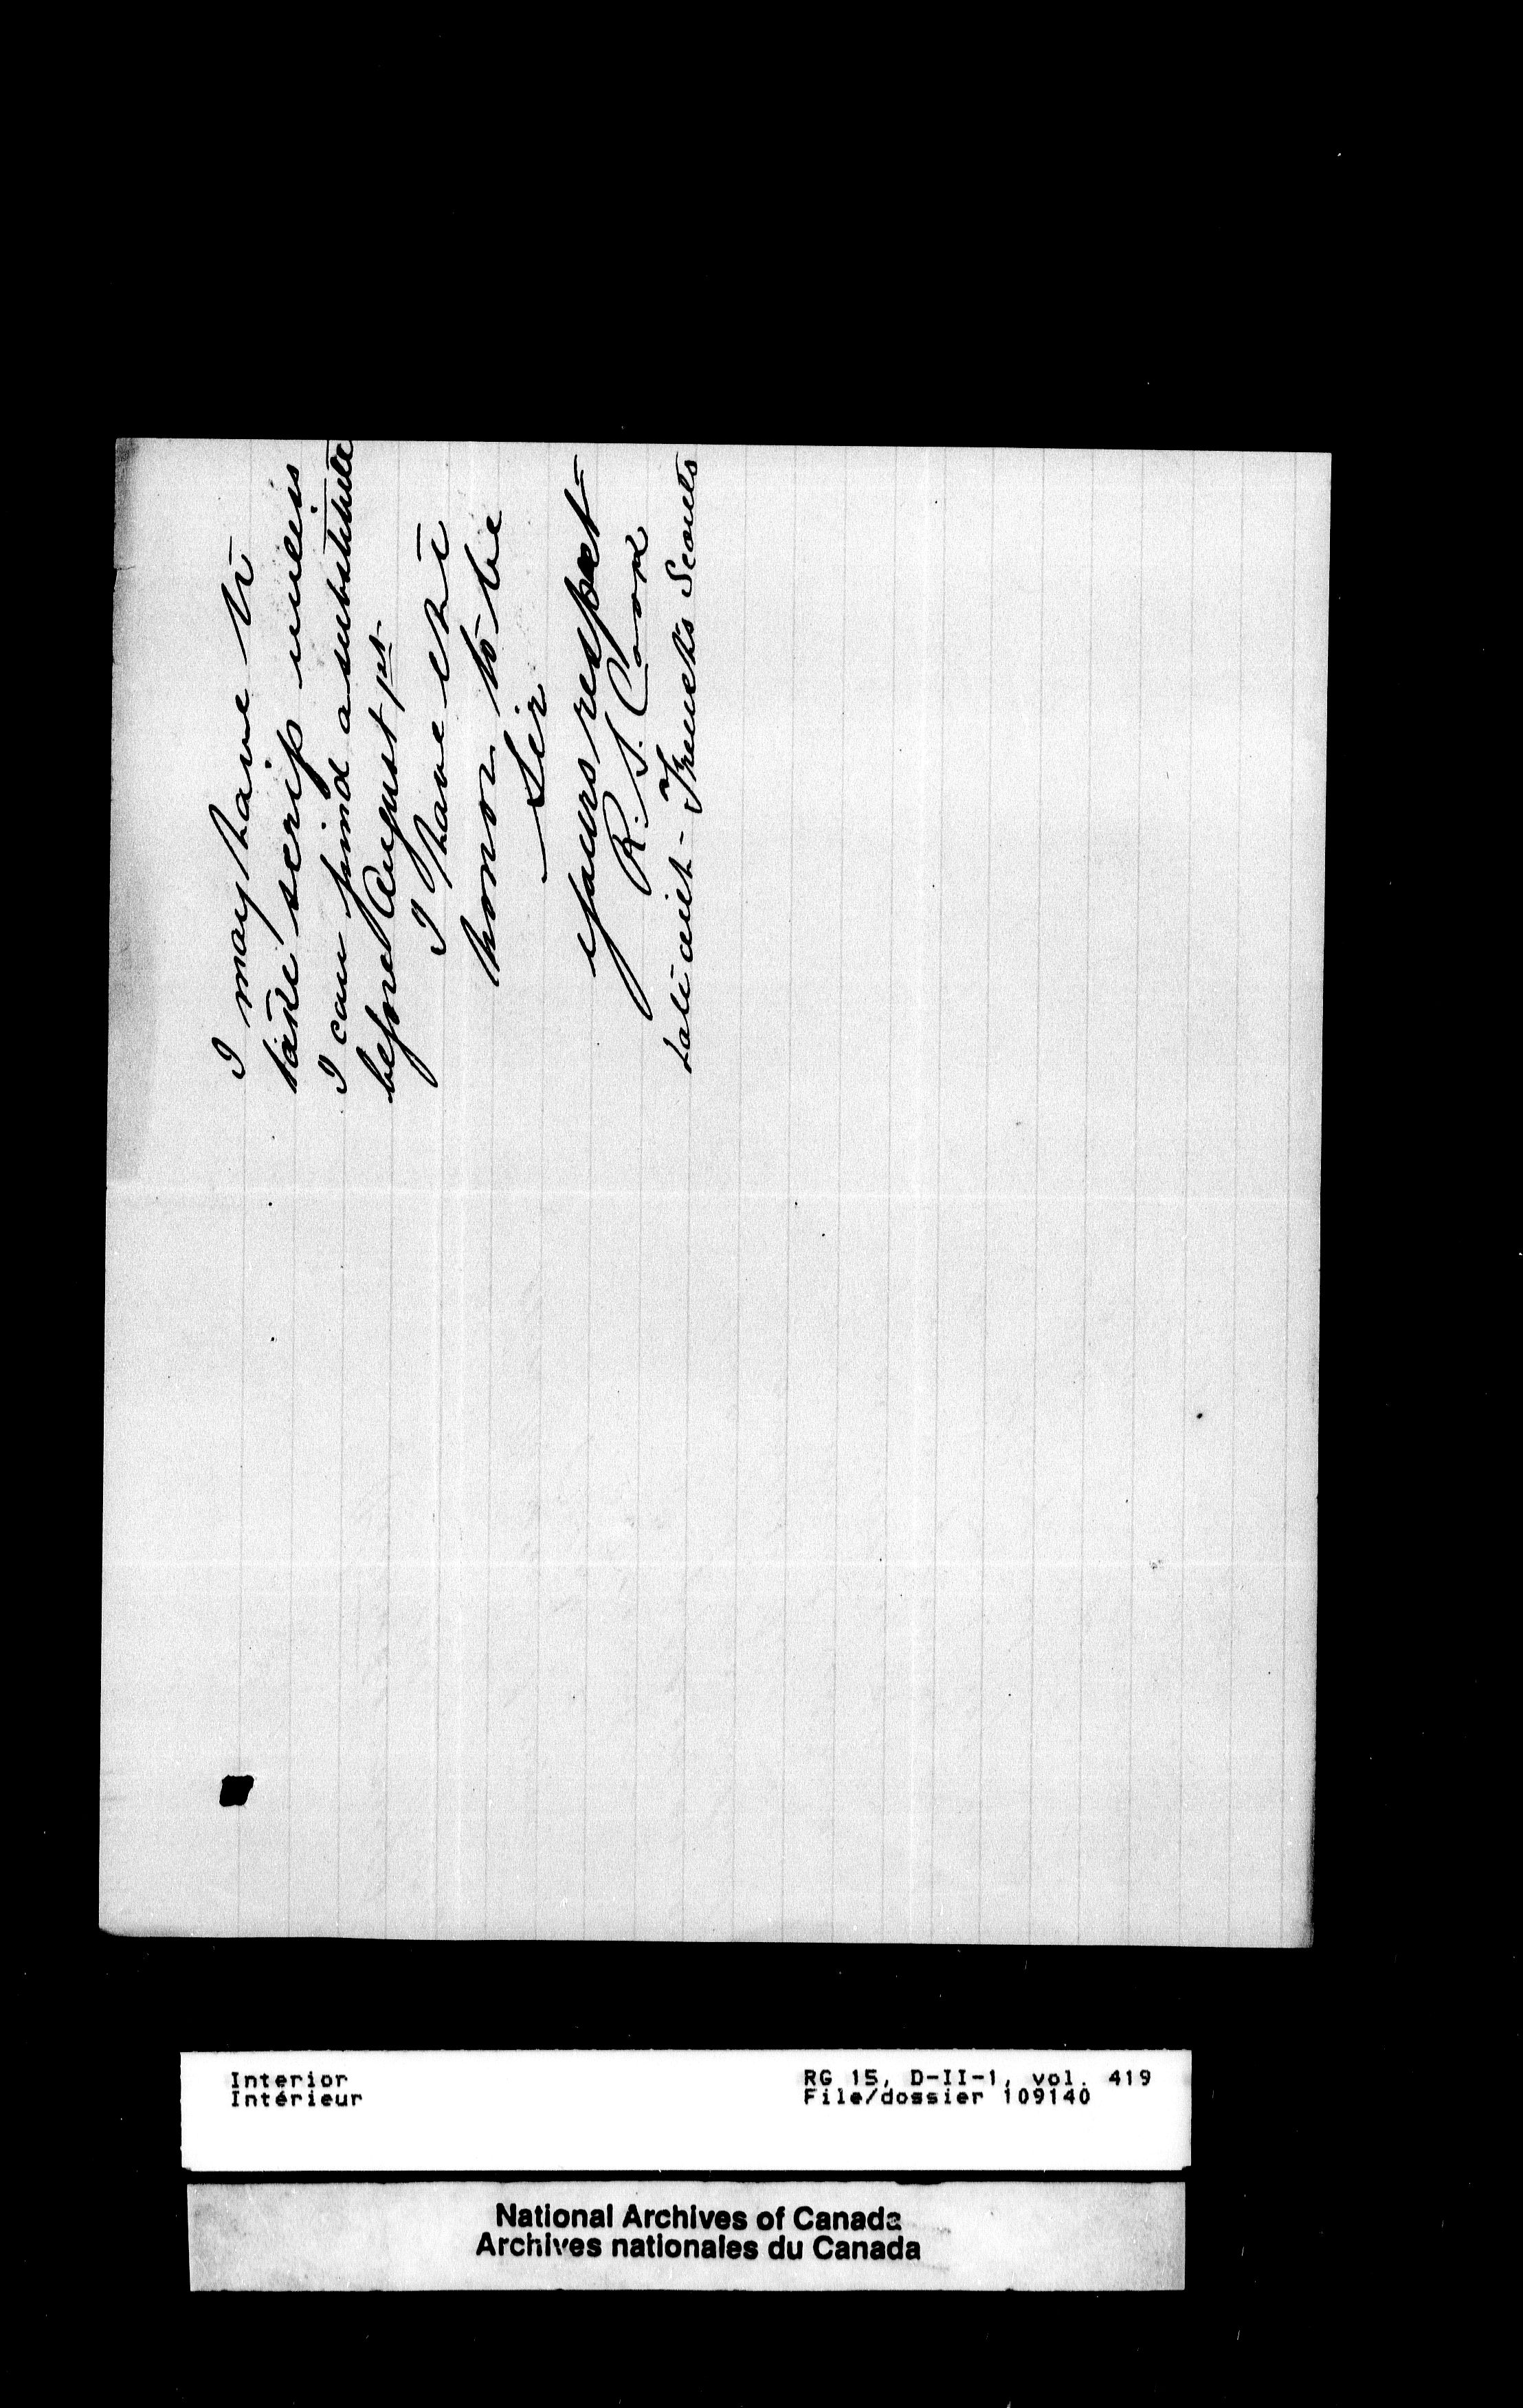 I may have to
take scrip unless
I can find a substitute
before August 1st
I have the
honor to be
Sir
yours respect
R. S. Cook
Late
French's Scouts
Interior
Intérieur
RG 15, D-II-1, vol. 419
File/dossier 109140
National Archives of Canada
Archives nationales du Canada